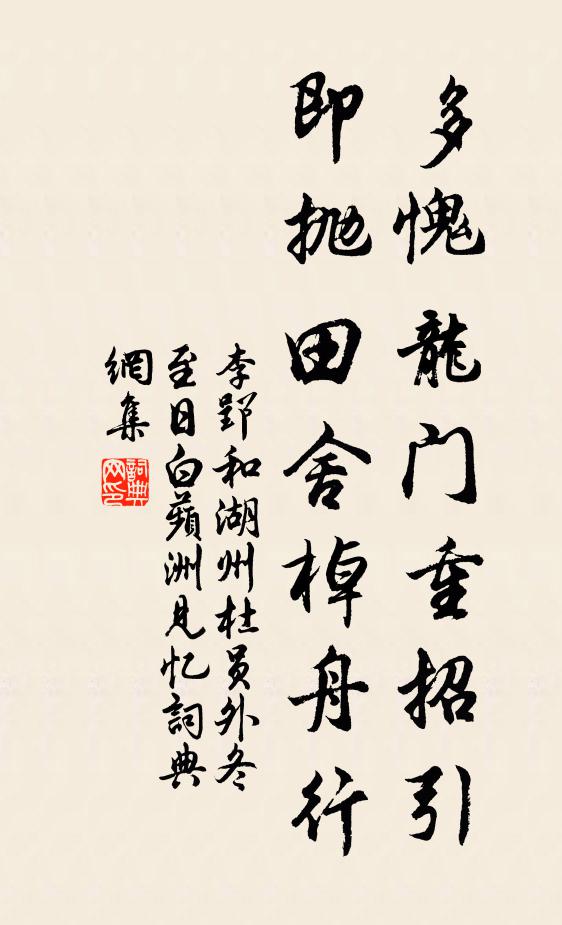 多愧龍门重招引
即抛田舍棹舟行
李郢和湖州杜员外冬
至日白蘋洲見忆詞典
網集
詞典
网印